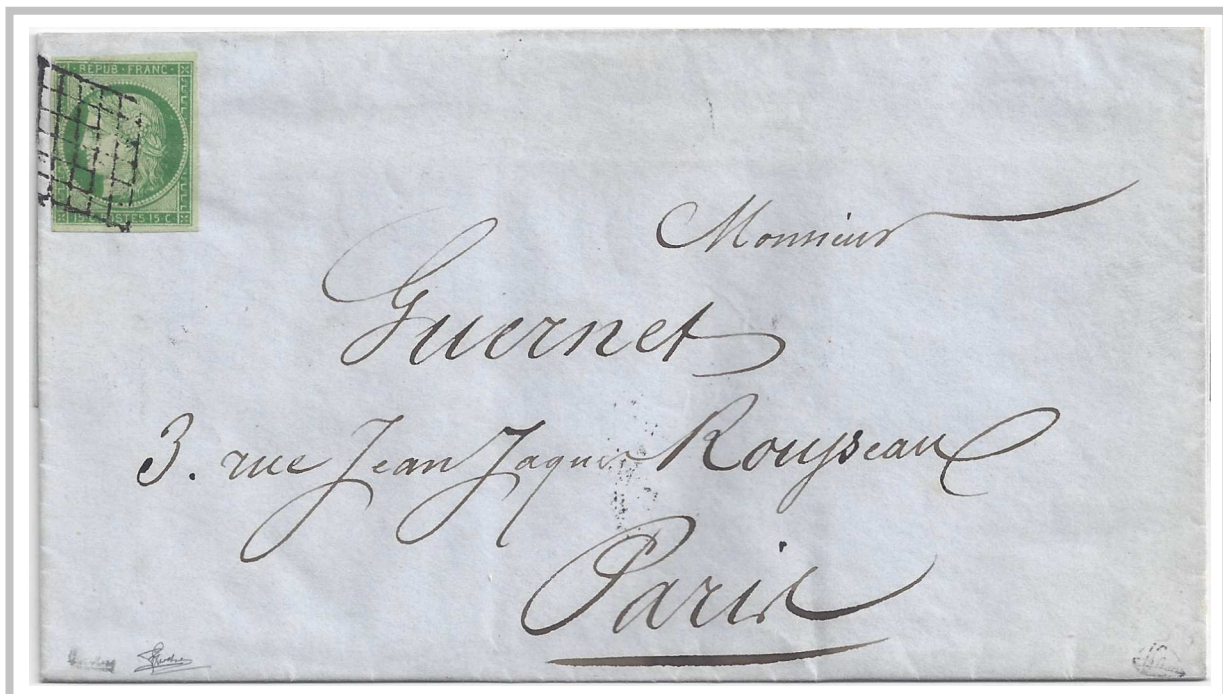 REPUB · FRANC
POSTES. 15 C
Monsieur
Guernet
3. rue Jean Jaques Rousseau
Paris